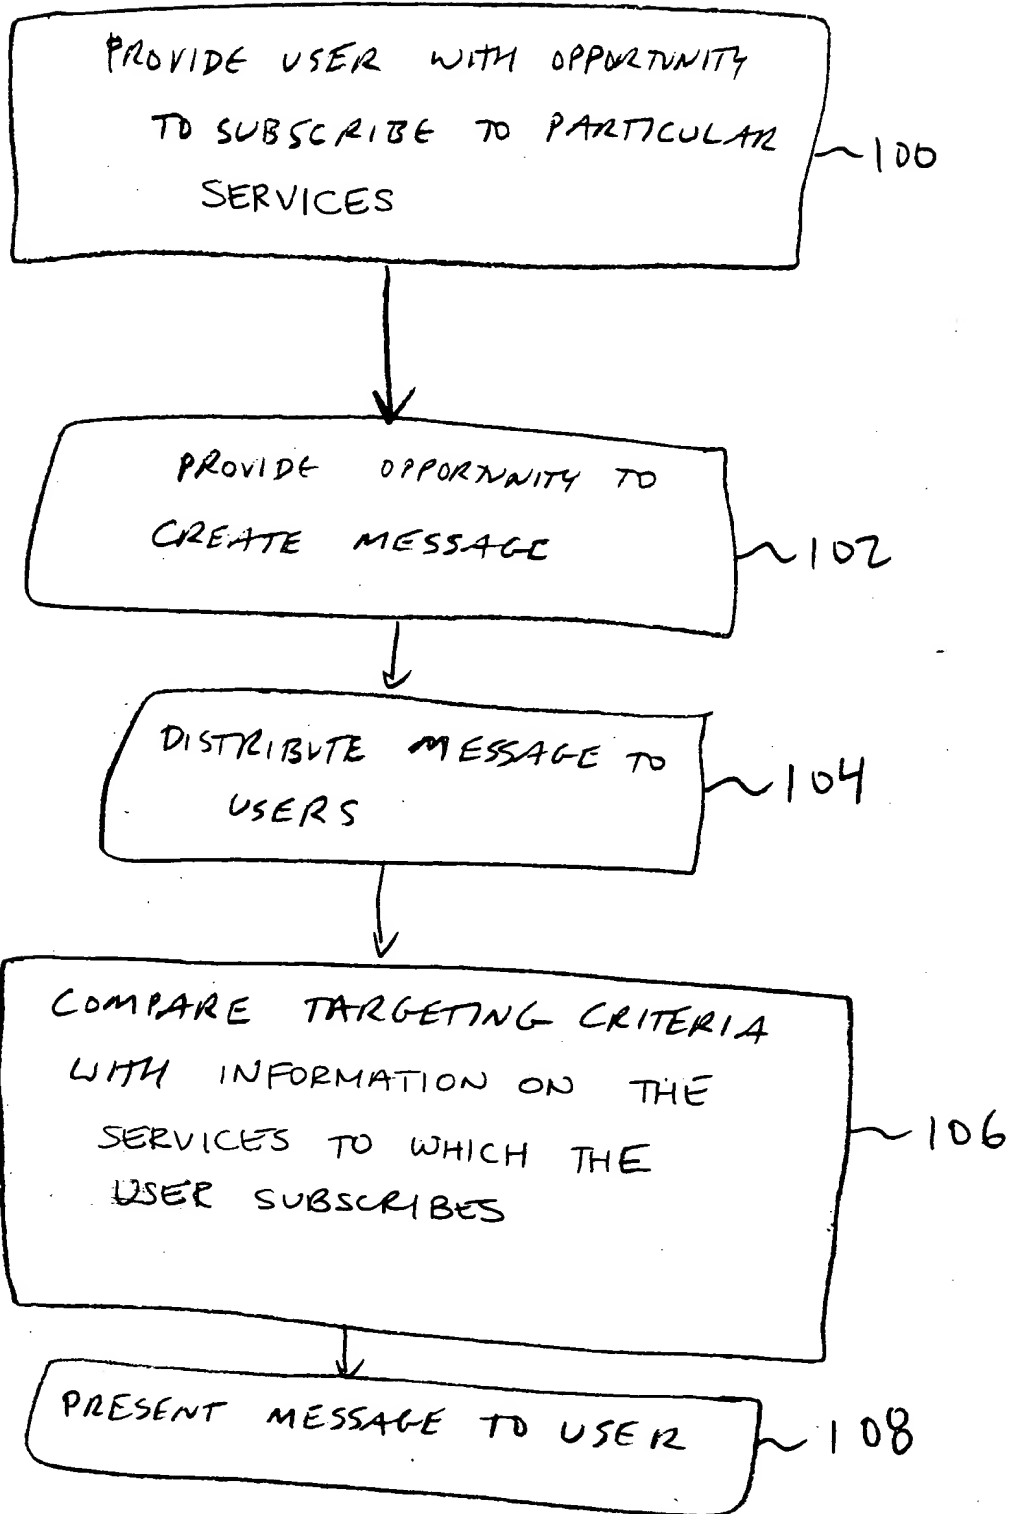 PROVIDE USER WITH OPPORTUNITY
TO SUBSCRIBE TO PARTICULAR
SERVICES
100
PROVIDE OPPORTUNITY TO
CREATE MESSAGE
102
DISTRIBUTE MESSAGE TO
USERS
104
COMPARE TARGETING CRITERIA
WITH INFORMATION ON THE
SERVICES TO WHICH THE
USER SUBSCRIBES
106
PRESENT MESSAGE TO USER
108